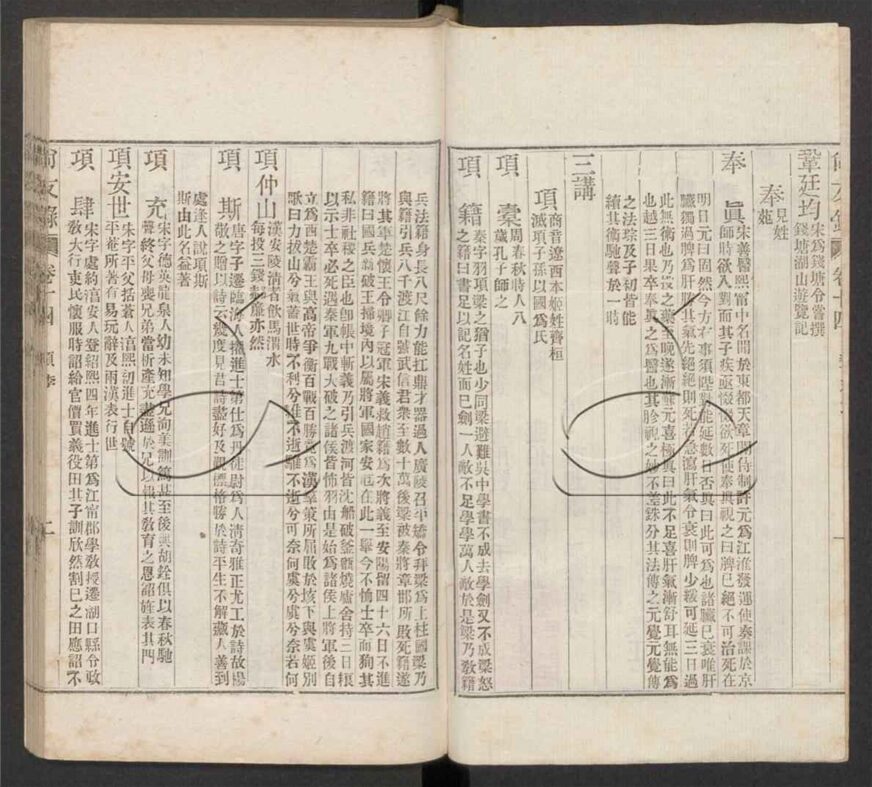 鞏廷均 宋爲錢塘令嘗撰
錢塘湖山遊覽記
奉 見姓
苑
奉眞 宋善醫熙甯中名聞於東都天章閣待制許元爲江淮發運使奏課於京
師時欲入對而其子疾亟惙惙欲死使奉眞視之曰脾巳絕不可治死在
明日元曰固然今方有事須陛對能延數日否眞曰此可爲也諸臟巳衰唯肝
臟獨過脾爲肝勝其氣先絕絕則死若急瀉肝氣令衰則脾少緩可延三日過
此無術也乃投之藥至晚遂漸蘇元喜極眞曰此不足喜肝氣漸舒耳無能爲
也越三日果卒奉眞之爲醫也其胗視之妙不差銖分其法傳之元覺元覺傳
之法琮及子初皆能
續其術馳聲於一時
三講
項 商音遼西本姬姓齊桓
滅項子孫以國爲氏
項橐 周春秋時人八
歲孔子師之
項籍 秦字羽項梁之猶子也少同梁避難吳中學書不成去學劍又不成梁怒
之籍曰書足以記名姓而巳劍一人敵不足學學萬人敵於是梁乃敎籍
兵法籍身長八尺餘力能扛鼎才器過人廣陵召平矯令拜梁爲上柱國梁乃
與籍引兵八千渡江自號武信君衆至數十萬後梁被秦將章邯所敗死籍遂
將其軍楚懷王令卿子冠軍宋義救趙籍爲次將義至安陽留四十六日不進
籍曰國兵新破王掃境內以屬將軍國家安危在此一舉今不恤士卒而狥其
私非社稷之臣也卽帳中斬義乃引兵渡河皆沈船破釜甑燒廬舍持三日糧
以示士卒必死遇秦軍九戰大破之諸侯皆怖羽由是始爲諸侯上將軍後自
立爲西楚霸王與高帝爭衡百戰百勝竟爲漢羣策所屈敗於垓下與虞姬別
歌曰力拔山兮氣蓋世時不利兮騅不逝騅不逝兮可奈何虞兮虞兮奈若何
項仲山 漢安陵淸者飲馬渭水
每投三錢郝廉亦然
項斯 唐字子遷臨海人擢進士第仕爲丹徒尉爲人淸奇雅正尤工於詩故楊
敬之贈以詩云幾度見君詩盡好及觀標格勝於詩平生不解藏人善到
處逢人說項斯
斯由此名益著
項充 宋字德英龍泉人幼未知學兄詢美訓篤甚至後與胡銓俱以春秋馳
聲終父母喪兄弟當析產充遜於兄以報其敎育之恩詔旌表其門
項安世 宋字平父括蒼人淳熙初進士自號
平菴所著有易玩辭及兩漢表行世
項肆 宋字處約淯安人登紹熙四年進士第爲江甯郡學敎授遷湖口縣令政
敎大行吏民懷服時詔給官價買義役田其子訓欣然割巳之田應詔不
尙友錄 卷十四 項